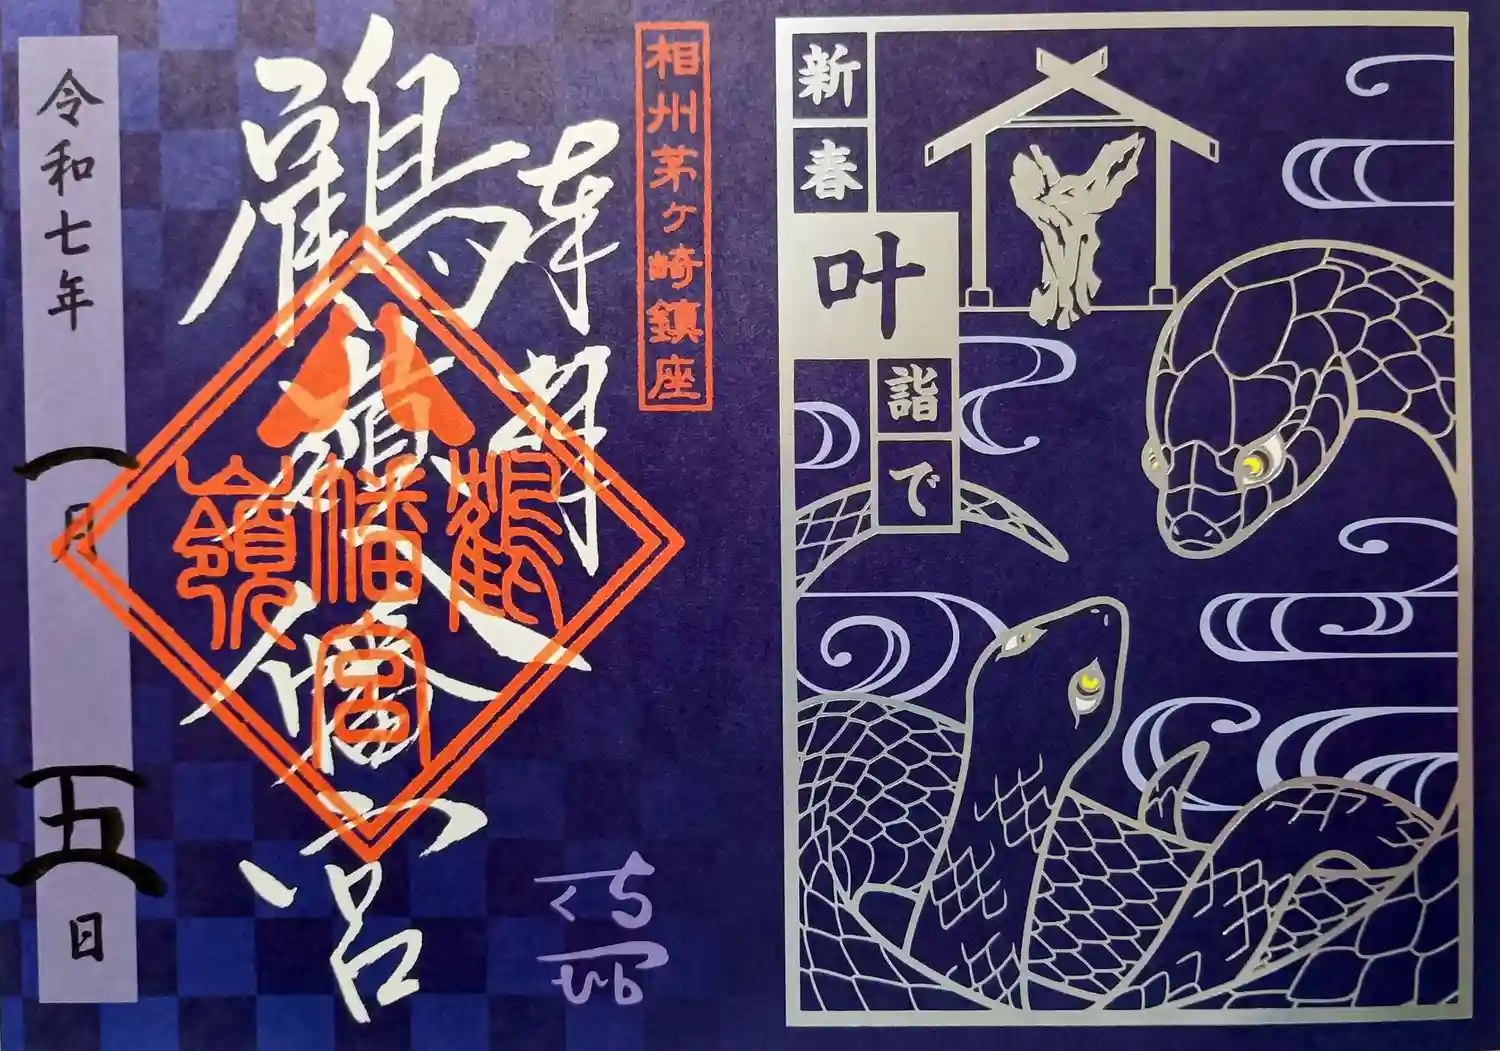 新春
叶
詣で
相州茅ヶ崎鎮座
奉拝
鶴嶺八幡宮
鶴嶺
八幡宮
令和七年
一月
五日